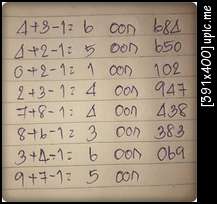 4+3-1= 6 oon 684
4+2-1= 5 oon 650
0+2-1= 1 oon 102
2+3-1= 4 oon 947
7+8-1= 4 oon 438
8+6-1= 3 oon 383
3+4-1= 6 oon 069
9+7-1= 5 oon
[391x400] upic.me